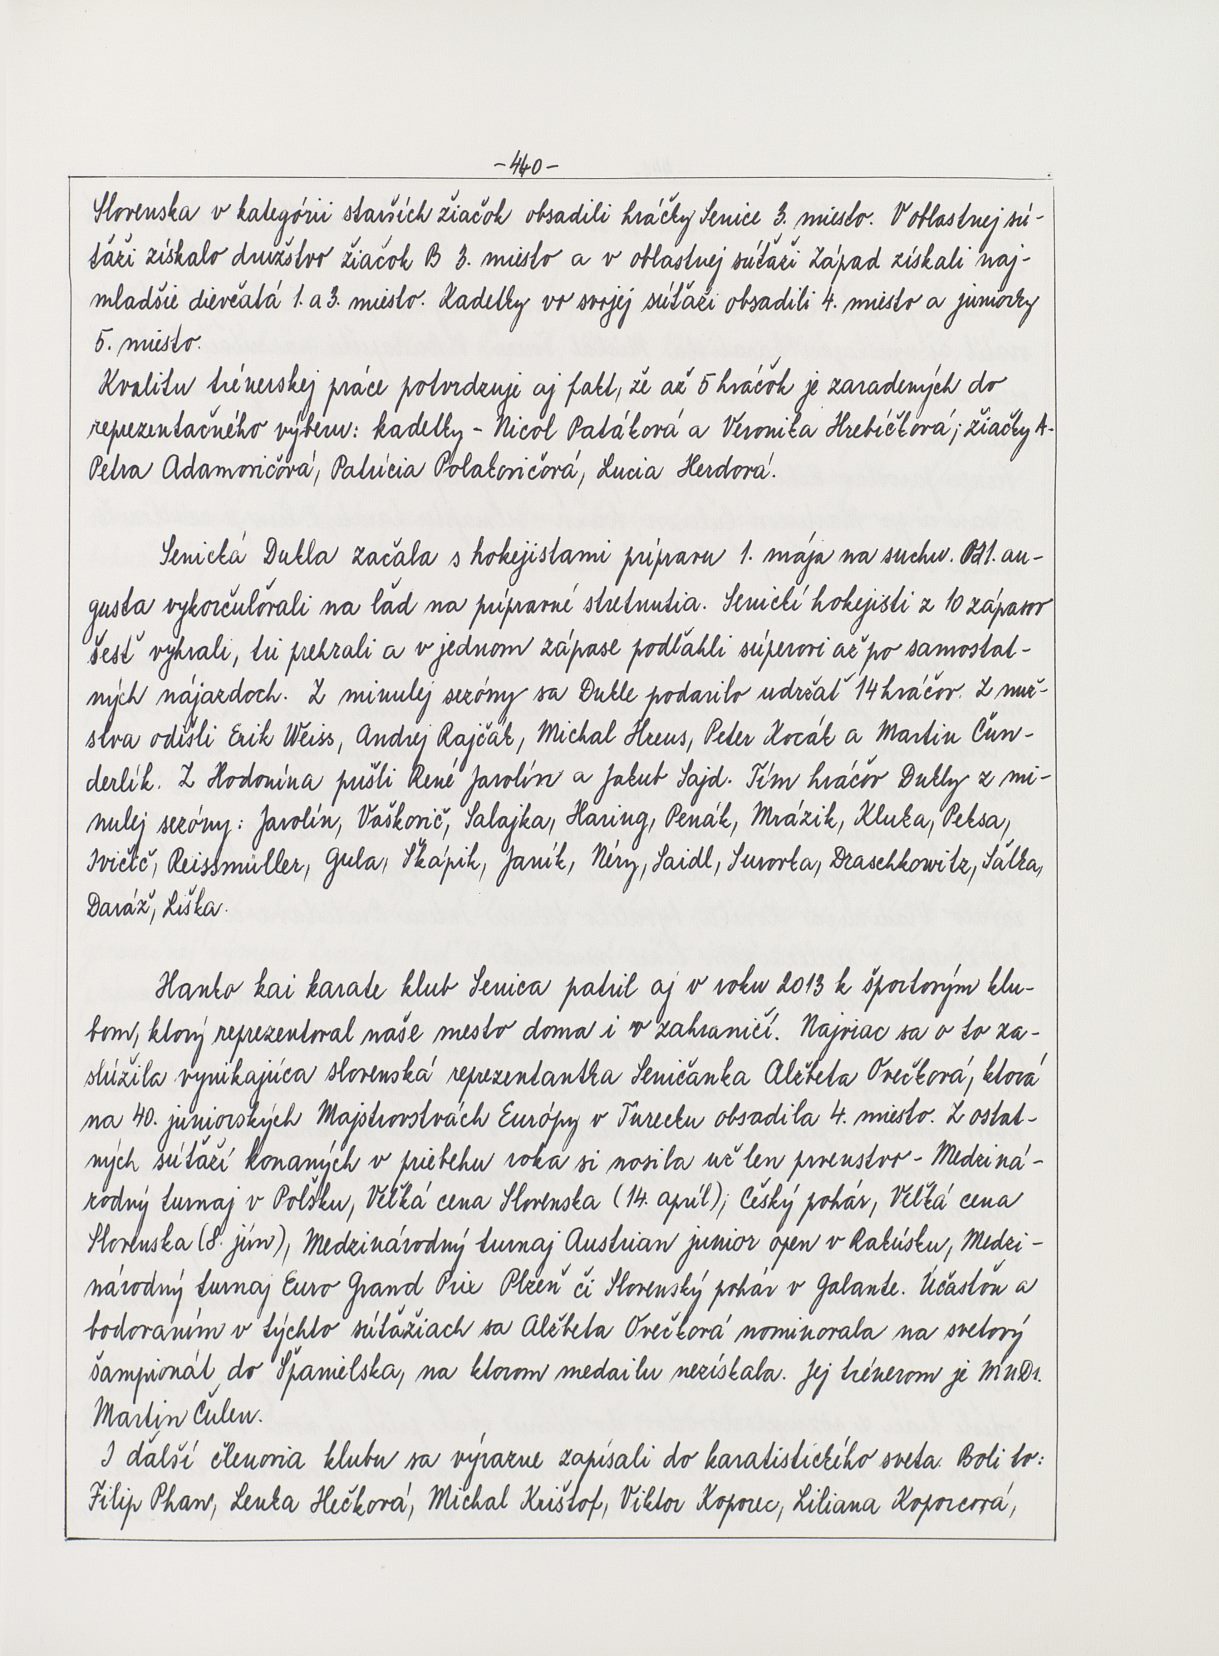 -440-
Slovenska v kategórii starších žiačok obsadili hráčky Senice 3. miesto. V oblastnej sú-
ťaži získalo družstvo žiačok B 3. miesto a v oblastnej súťaži Západ získali naj-
mladšie dievčatá 1. a 3. miesto. Kadetky vo svojej súťaži obsadili 4. miesto a juniorky
5. miesto.
Kvalitu trénerskej práce potvrdzuje aj fakt, že až 5 hráčok je zaradených do
reprezentačného výberu: kadetky - Nicol Patáková a Veronika Hrebíčková; žiačky A-
Petra Adamovičová, Patrícia Polakovičová, Lucia Herdová.
Senická Dukla začala s hokejistami prípravu 1. mája na suchu. Od 1. au-
gusta vykorčuľovali na ľad na prípravné stretnutia. Senickí hokejisti z 10 zápasov
šesť vyhrali, tri prehrali a v jednom zápase podľahli súperovi až po samostat-
ných nájazdoch. Z minulej sezóny sa Dukle podarilo udržať 14 hráčov. Z muž-
stva odišli Erik Weiss, Andrej Rajčák, Michal Hreus, Peter Kocák a Martin Čun-
derlík. Z Hodonína prišli René Jarolín a Jakub Sajd. Tím hráčov Dukly z mi-
nulej sezóny: Jarolín, Vaškovič, Salajka, Haring, Penák, Mrázik, Kluka, Peksa,
Ivičič, Reissmüller, Gula, Škápik, Janík, Néry, Saidl, Surovka, Draschkowitz, Sálka,
Daráž, Liška.
Hanko kai karate klub Senica patril aj v roku 2013 k športovým klu-
bom, ktorý reprezentoval naše mesto doma i v zahraničí. Najviac sa o to za-
slúžila vynikajúca slovenská reprezentantka Seničanka Alžbeta Ovečková, ktorá
na 40. juniorských Majstrovstvách Európy v Turecku obsadila 4. miesto. Z ostat-
ných súťaží konaných v priebehu roka si nosila už len prvenstvo - Medziná-
rodný turnaj v Poľsku, Veľká cena Slovenska (14. apríl); Český pohár, Veľká cena
Slovenska (8. jún), Medzinárodný turnaj Austrian junior open v Rakúsku, Medzi-
národný turnaj Euro Grand Prix Plzeň či Slovenský pohár v Galante. Účasťou a
bodovaním v týchto súťažiach sa Alžbeta Ovečková nominovala na svetový
šampionát do Španielska, na ktorom medailu nezískala. Jej trénerom je MUDr.
Martin Čulen.
I ďalší členovia klubu sa výrazne zapísali do karatistického sveta. Boli to:
Filip Phan, Lenka Hečková, Michal Krištof, Viktor Koporec, Liliana Koporcová,